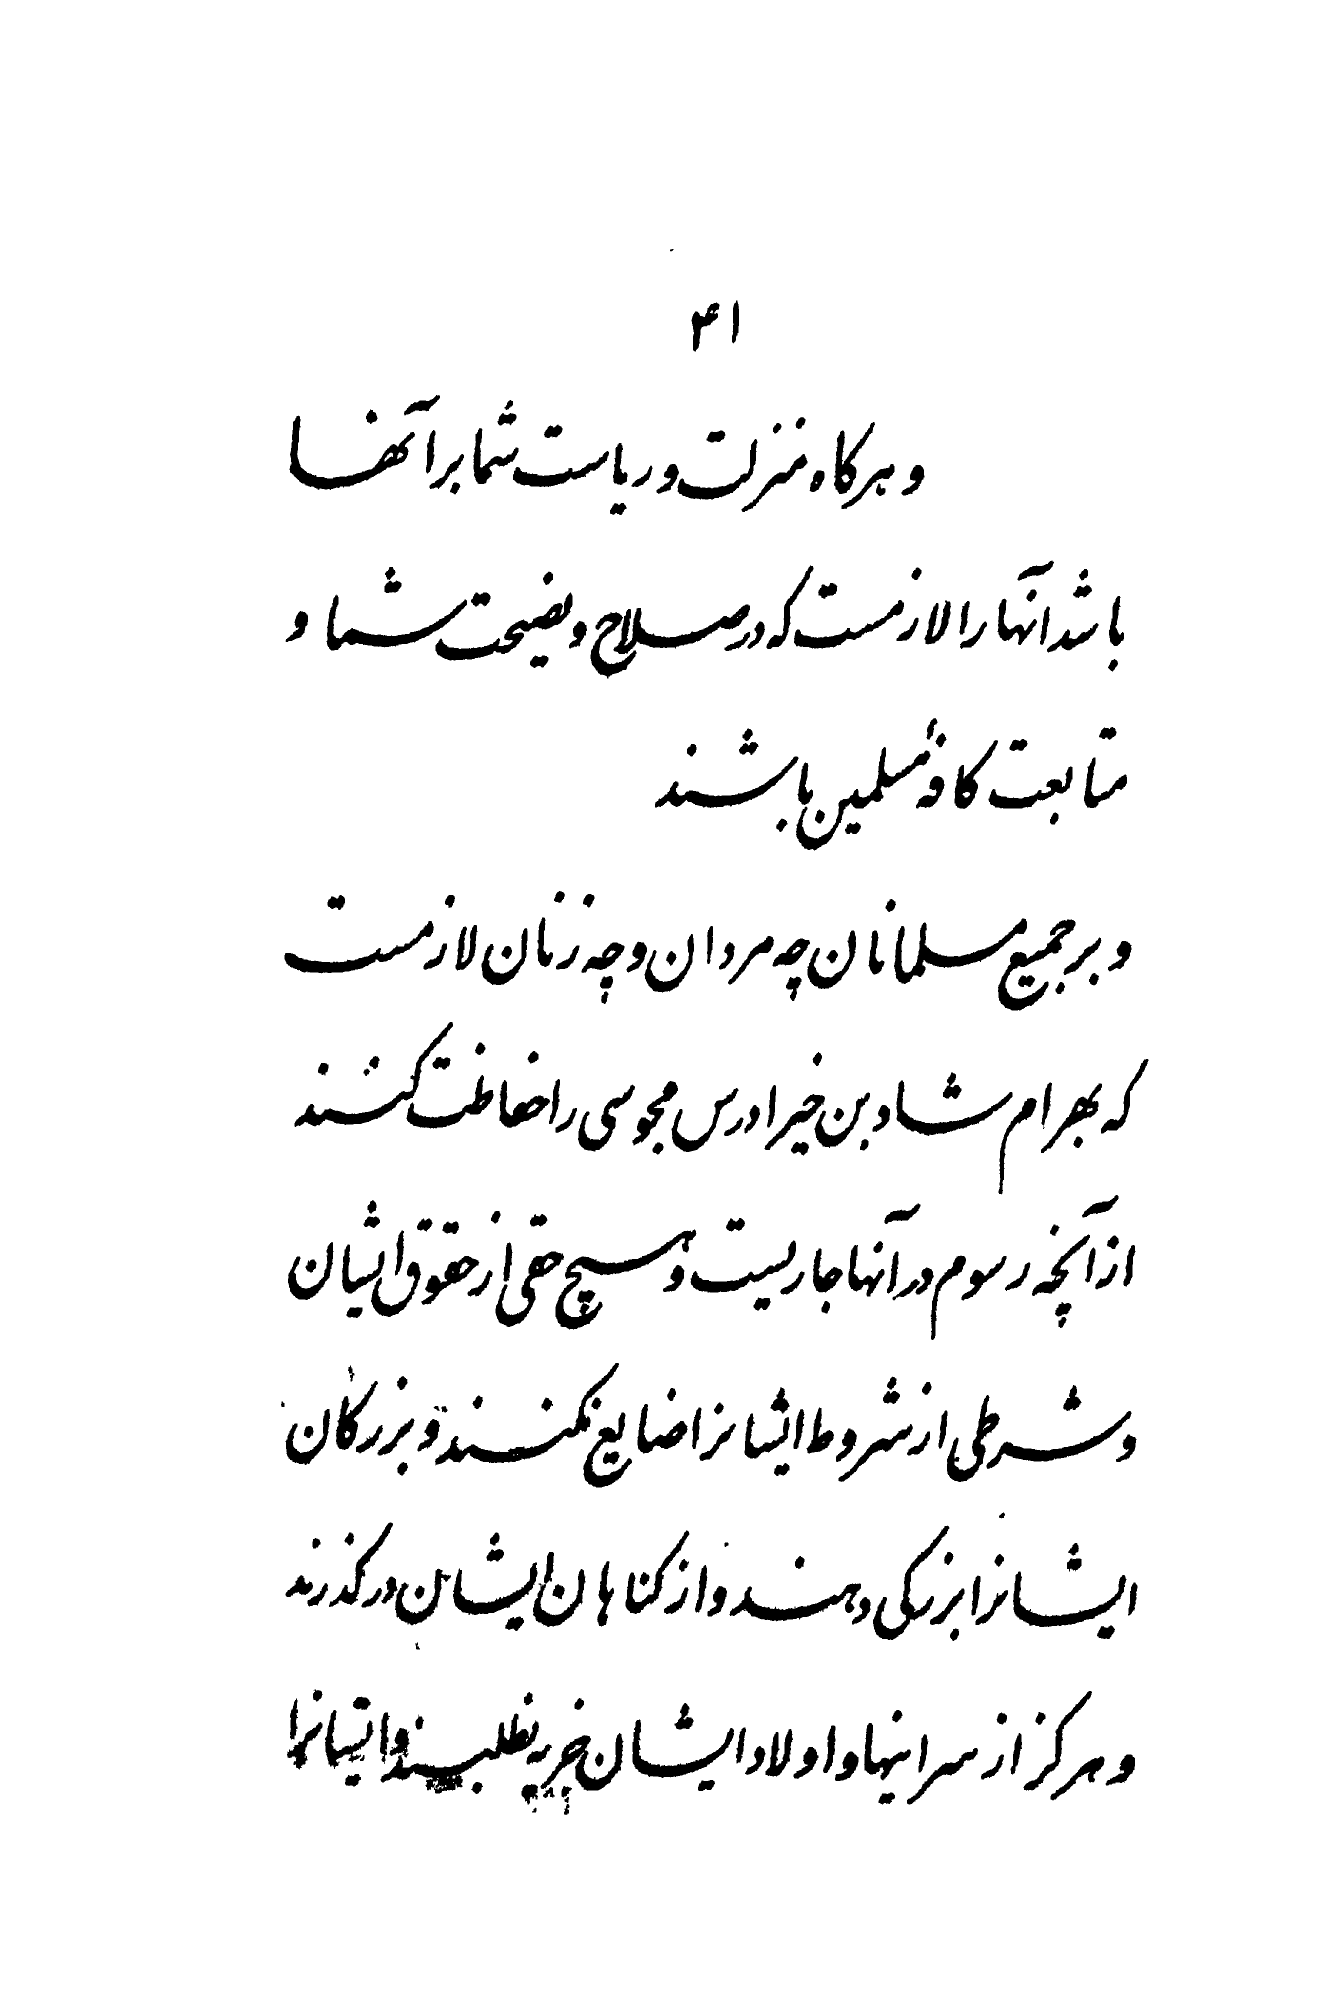 ۴۱
و هرکاه منزلت و ریاست شما بر آنها
باشد انها را لازمست که در صلاح و نصیحت شما و
متابعت کافهٔ مسلمین باشند
و بر جمیع مسلمانان چه مردان و چه زنان لازمست
که بهرام شاد بن خیرادرس مجوسی را حفاظت کنند
از آنچه رسوم در آنها جاریست و هیچ حقی از حقوق ایشان
و شرطی از شروط ایشانرا ضایع نکنند و بزرکان
ایشانرا بزرکی دهند و از کناهان ایشان در کذرند
و هرکز از سر اینها و اولاد ایشان جزیه نطلبند و ایشانرا